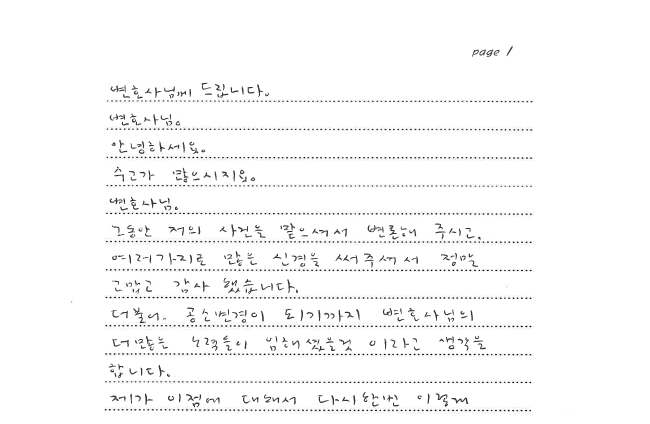 page 1
변호사님께 드립니다.
변호사님.
안녕하세요.
수고가 많으시지요.
변호사님.
그동안 저의 사건을 맡으셔서 변론해 주시고,
여러가지로 많은 신경을 써주셔서 정말
고맙고 감사 했습니다.
더불어. 공소변경이 되기까지 변호사님의
더많은 노력들이 임해졌을것 이라고 생각을
합니다.
제가 이점에 대해서 다시한번 이렇게